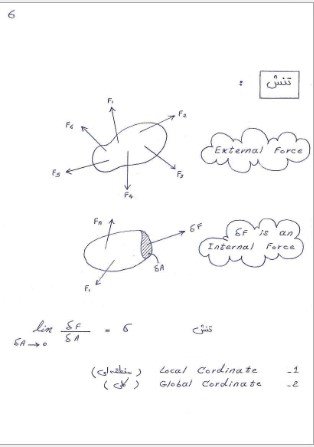 6
تنش :
F₁
F₂
F₆
F₅
F₃
F₄
External Force
F₂
δF
δA
F₁
δF is an
Internal Force
lim δF / δA = σ تنش
δA → 0
1_ Local Cordinate (منطقه‌ای)
2_ Global Cordinate (کلی)